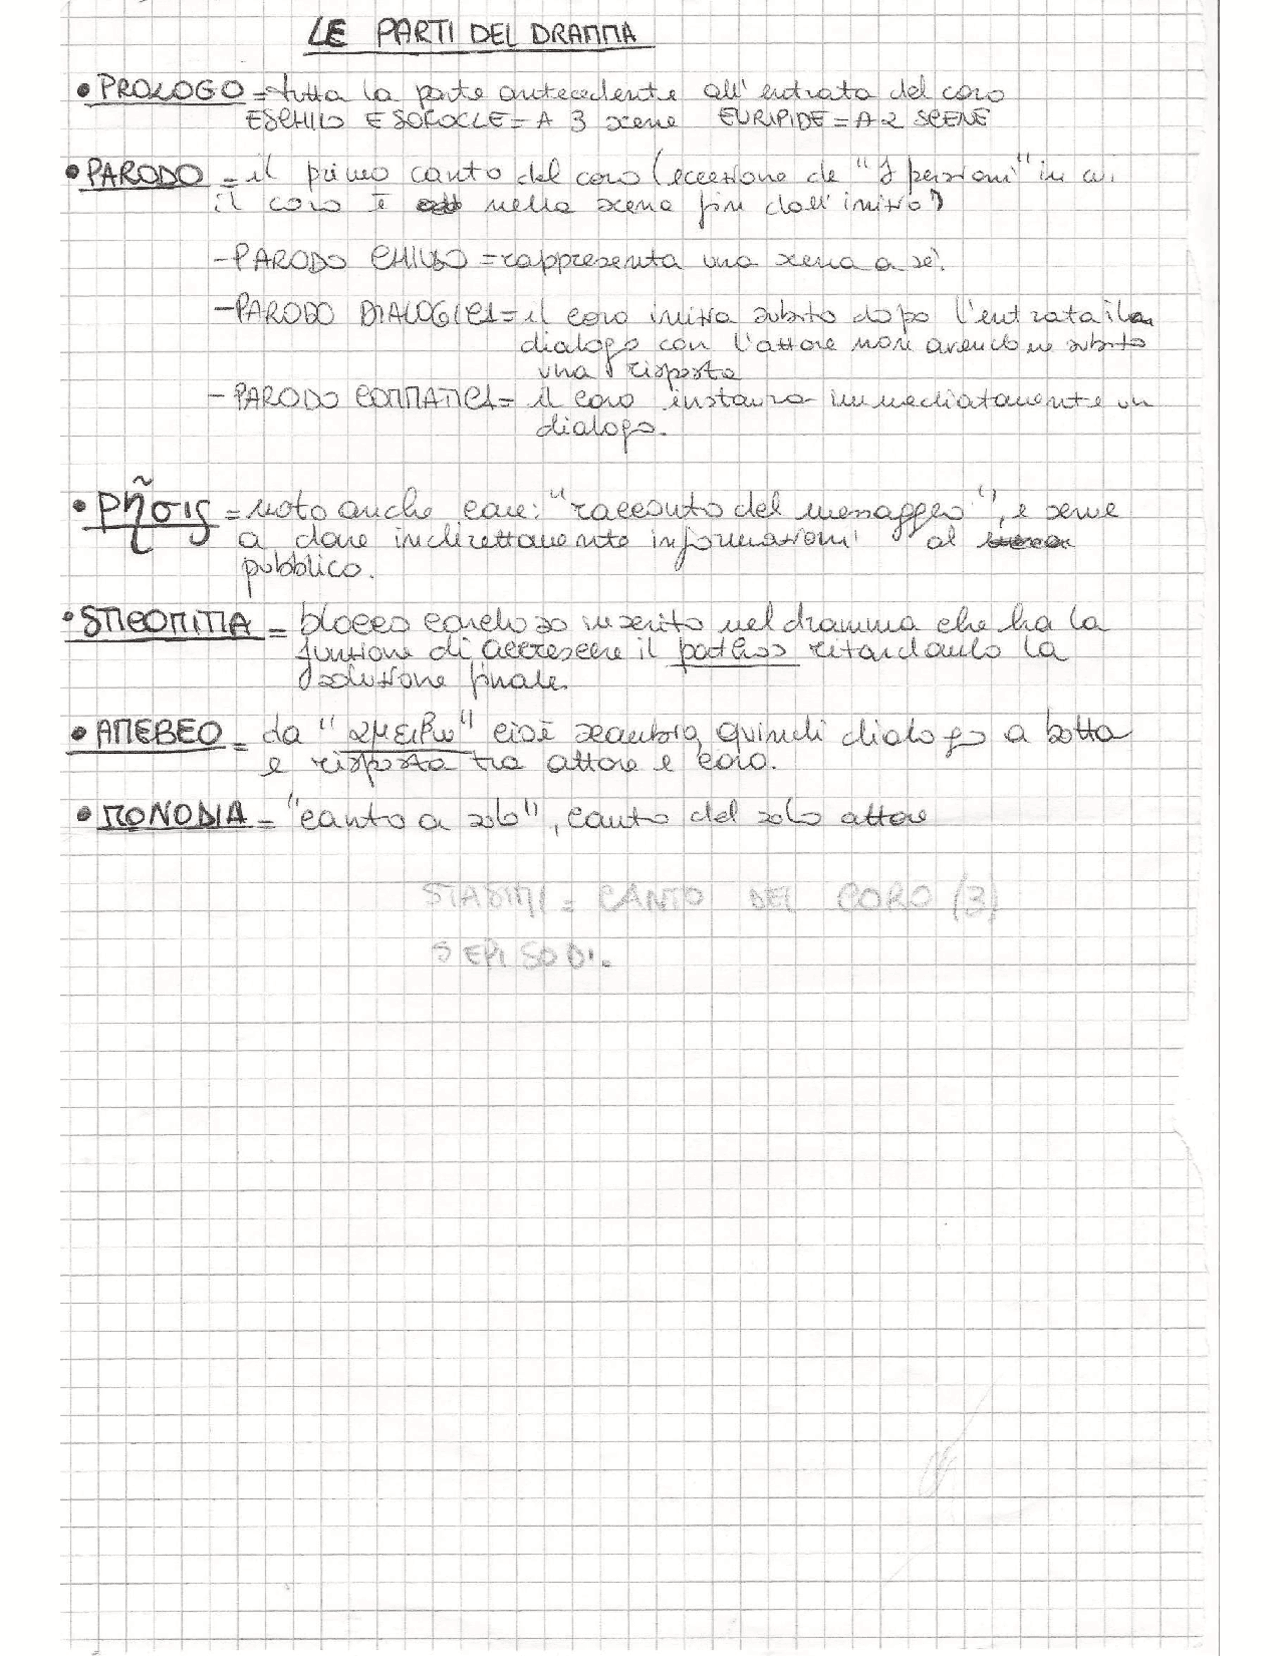 LE PARTI DEL DRAMMA
• PROLOGO = tutta la parte antecedente all'entrata del coro
ESCHILO E SOFOCLE = A 3 scene EURIPIDE = A 2 SCENE
• PARODO = il primo canto del coro (eccezione de "I persiani" in cui
il coro è nella scena fin dall'inizio)
- PARODO CHIUSO = rappresenta una scena a sé.
- PARODO DIALOGICA = il coro inizia subito dopo l'entrata il
dialogo con l'attore non avendone subito
una risposta
- PARODO COMMATICA = il coro instaura immediatamente un
dialogo.
• ῥῆσις = noto anche come: "racconto del messaggero", e serve
a dare indirettamente informazioni al
pubblico.
• STICOMITIA = blocco concluso inserito nel dramma che ha la
funzione di accrescere il pathos ritardando la
soluzione finale.
• AMEBEO = da "αμειβω" cioè scambio, quindi dialogo a botta
e risposta tra attore e coro.
• MONODIA = "canto a solo", canto del solo attore
STASIMI = CANTO DEL CORO (3)
5 EPISODI.